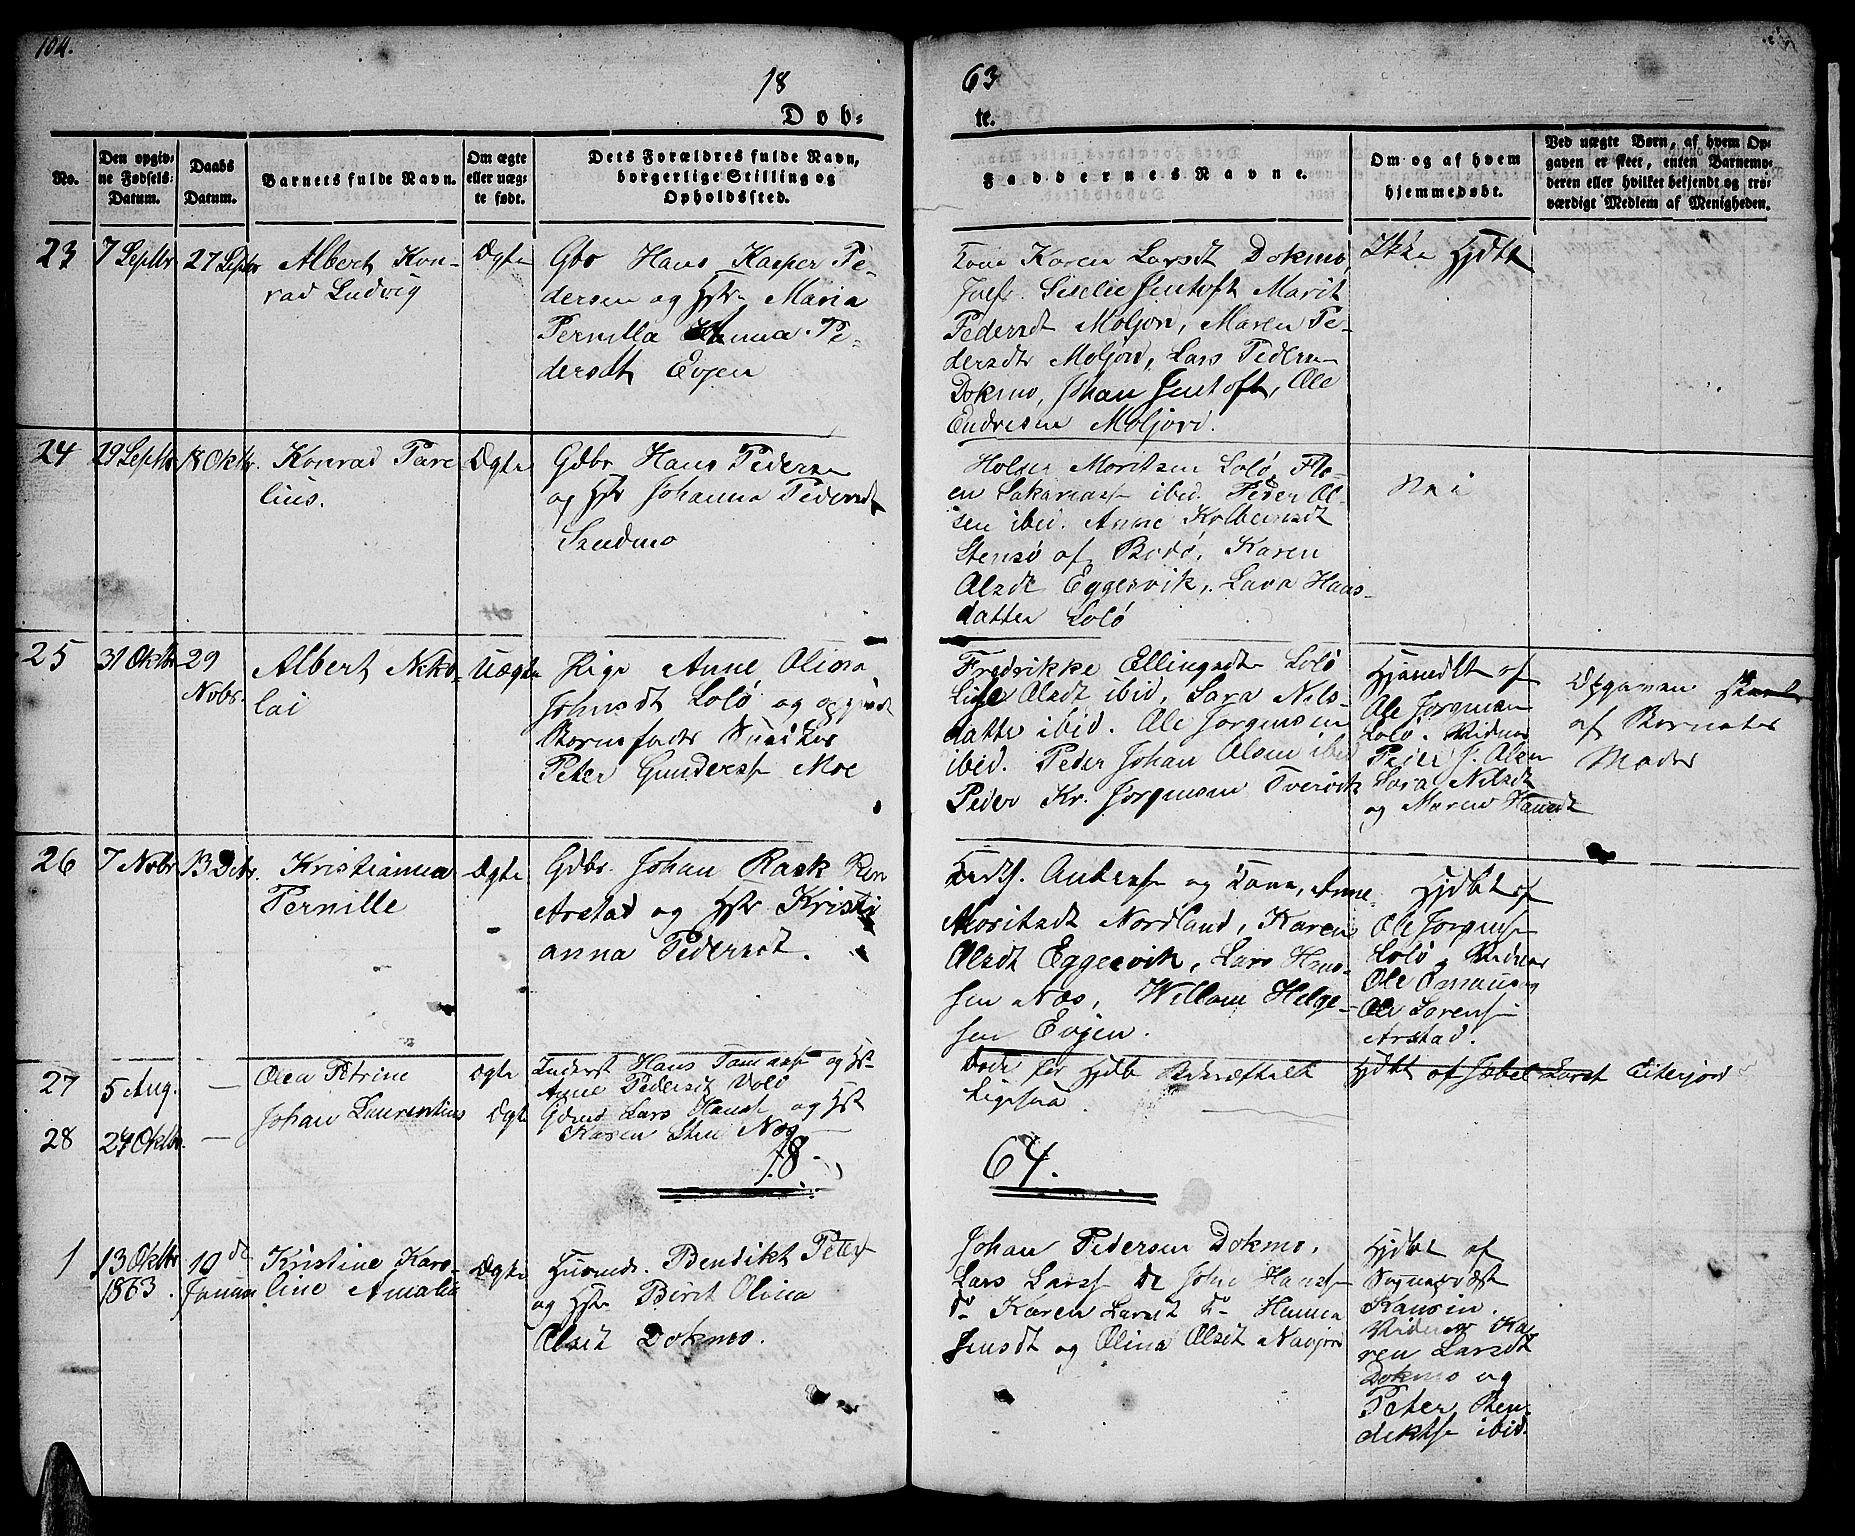 104.
18 63
Døb- te.
No.
Den opgiv-
ne Fødsels-
Datum.
Daabs
Datum.
Barnets fulde Navn.
Om ægte
eller uæg-
te født.
Dets Forældres fulde Navn,
borgerlige Stilling og
Opholdssted.
Faddernes Navne.
Om og af hvem
hjemmedøbt.
Ved uægte Børn, af hvem Op-
gaven er skeet, enten Barnemo-
deren eller hvilket bekjendt og tro-
værdigt Medlem af Menigheden.
23
7 Septbr
27 Septbr
Albert Kon-
rad Ludvig
Ægte
Gbr Hans Kasper Pe-
dersen og Hstr Maria
Pernilla Anna Pe-
dersdt Evjen
Kone Karen Larsdt Dokmo,
Jfr. Siselie Jentoft Marit
Pedersdt Moljord, Maren Pe-
dersdtr Moljord, Lars Pedersen
Dokmo, Johan Jentoft, Ole
Endresen Moljord.
Ikke Hjdbt
24
29 Septbr
18 Oktbr.
Konrad Pare
lius.
Ægte
Gdbr Hans Pedersen
og Hstr Johanna Pedersdt
Sandmo
Holger Moritsen Løló, Elo-
en Sakariass ibid. Peder Ol-
sen ibid. Anne Kolbeinsdt
Stensø af Bodø, Karen
Olsdt Eggesvik, Lava Hans-
datter Løló
Nei
25
31 Oktbr
29
Nobr.
Albert Niko-
lai
Uægte
Pige Anne Olina
Johnsdt Løló og opgivet
Barnefader Snedker
Peter Gunderss Moe
Fredrikke Ellingsdtr Løló
Lise Olsdt ibid, Sara Nils-
datte ibid. Ole Jørgensen
ibid. Peder Johan Olsen ibid
Peder Kr. Jørgensen Tvervik
Hjemdbt af
Ole Jørgensen
Løló. Vidner
Peder J. Olsen
Sara Nilsdt
og Maren Hansdt
Opgaven skeet
af Barnets
Moder
26
7 Nobr
13 Debr.
Kristianna
Pernille
Ægte
Gdbr. Johan Rask
Arstad og Hstr Kristi
anna Pedersdt.
Anderss og Kone, Anne
Moritsdt Nordland, Karen
Olsdt Eggesvik, Lars Hans-
sen Næs, Willam Helge-
sen Evjen.
Hjdbt af
Ole Jørgenss
Løló. Vidner
Ole Emausen
Ole Lorenss
Arstad.
27
5 Aug.
—
Olea Petrine
Ægte
Inderst Hans Tomass og Hst
Anne Pedersdt Løló
Døde før Hjdb Bekræftelse
Hjdbt af Jobel Larss Eiterjord
28
24 Oktbr.
—
Johan Laurentius
Ægte
Gdmd Lars Hanss og Hst
Karen Næs
18 64.
1
13 Oktbr
1863.
10de
Januar
Kristine Karo-
line Amalia
Ægte
Huusmd. Bendikt Peterss
og Hstr Birit Olina
Olsdt Dokmo.
Johan Pedersen Dokmo,
Lars Larss do John Hanss
do Karen Larsdt do Hanna
Jensdt og Olina Olsdt Navjord
Hjdbt af
Sognepræst
Kausin.
Vidner Ka-
ren Larsdt
Dokmo og
Peter Ben-
dektss ibid.